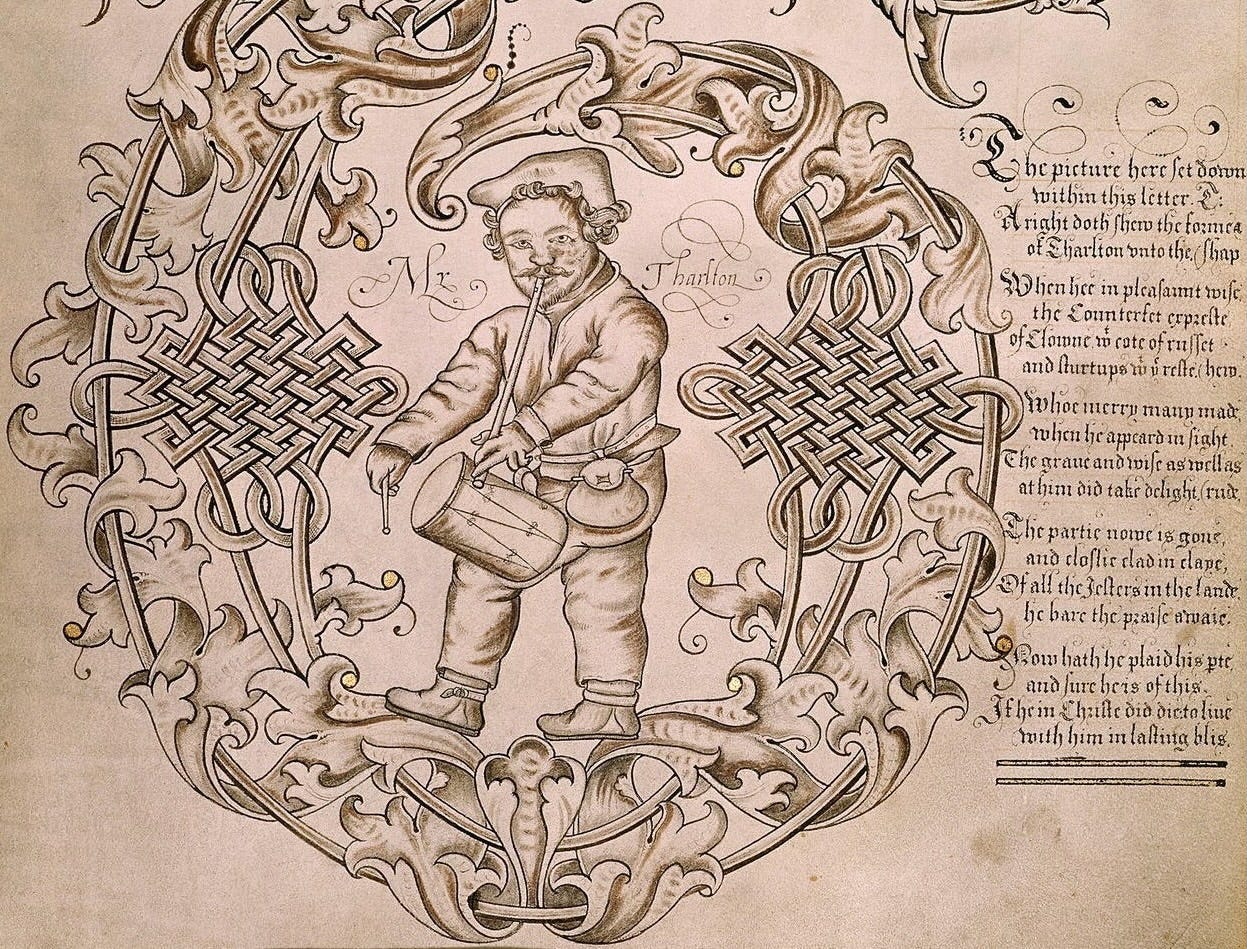 Mr Tharlton
The picture here set down
within this letter. T:
A right doth shew the forme &
of Tharlton vnto the, (shap
When hee in pleasaunt wise
the Counterfet expreste
of Clowne, wt cote of russet
and sturtups wt ye reste. (hew.
Whoe merry many made
when he appeard in sight
The graue and wise as well as
at him did take delight. (rude.
The partie nowe is gone,
and closlie clad in claye,
Of all the Jesters in the lande
he bare the praise awaie.
Now hath he plaid his pte
and sure he is of this.
If he in Christe did die to liue
with him in lasting blis.